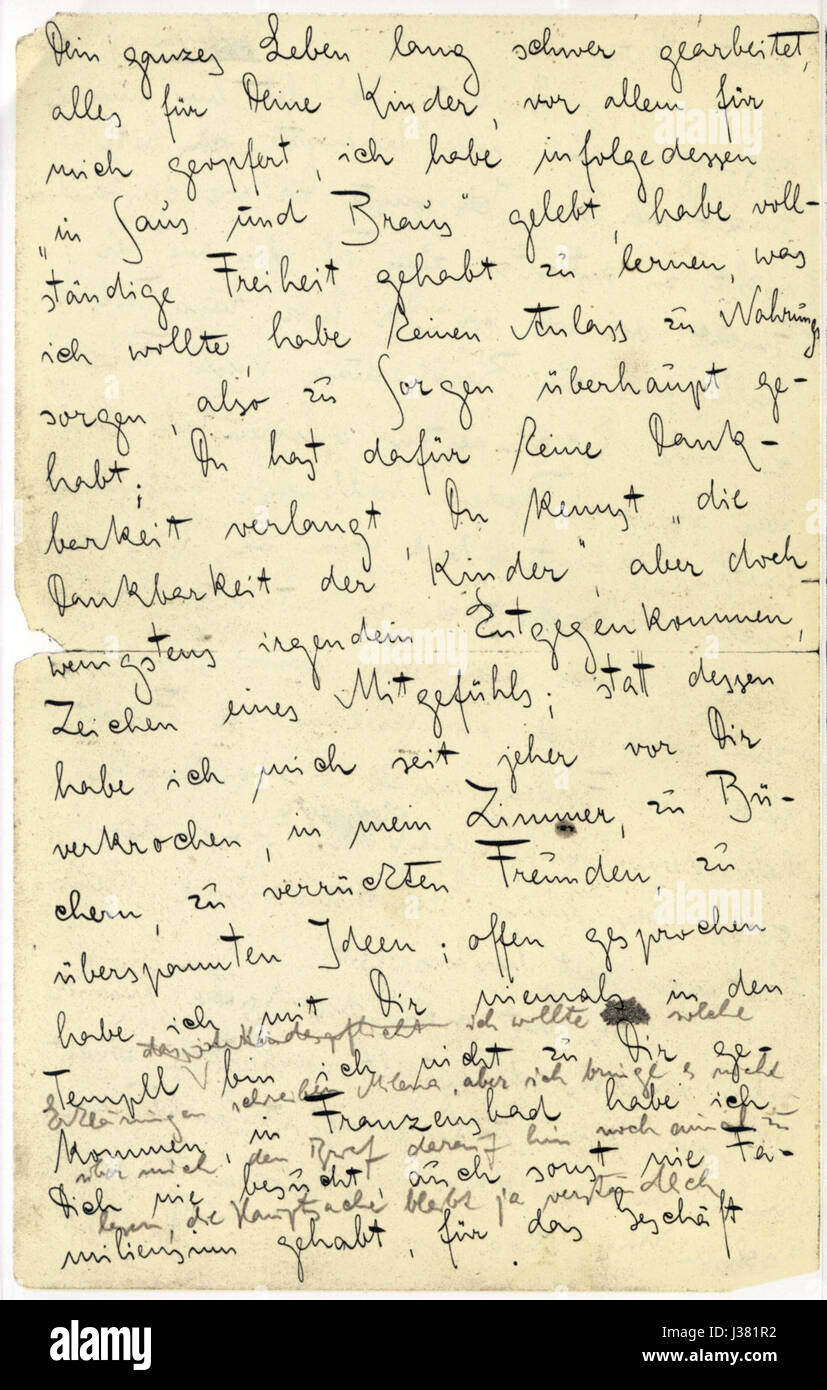 Dein ganzes Leben lang schwer gearbeitet,
alles für Deine Kinder, vor allem für
mich geopfert, ich habe infolgedessen
„in Saus und Braus" gelebt, habe voll-
ständige Freiheit gehabt zu lernen, was
ich wollte, habe keinen Anlass zu Nahrungs
sorgen, also zu Sorgen überhaupt ge-
habt; Du hast dafür keine Dank-
barkeit verlangt, Du kennst „die
Dankbarkeit der Kinder", aber doch
wenigstens irgendein Entgegenkommen,
Zeichen eines Mitgefühls; statt dessen
habe ich mich seit jeher vor Dir
verkrochen, in mein Zimmer, zu Bü-
chern, zu verrückten Freunden, zu
überspannten Ideen; offen gesprochen
habe ich mit Dir niemals, in den
ich wollte solche
Tempel bin ich nicht zu Dir ge-
Erklärungen schreiben Milena, aber ich bringe es nicht
kommen, in Franzensbad habe ich
über mich den Brief darauf hin noch einmal zu
Dich nie besucht, auch sonst nie Fa-
lesen, die Hauptsache bleibt ja verständlich
miliensinn gehabt, für das Geschäft
alamy
J381R2
www.alamy.com